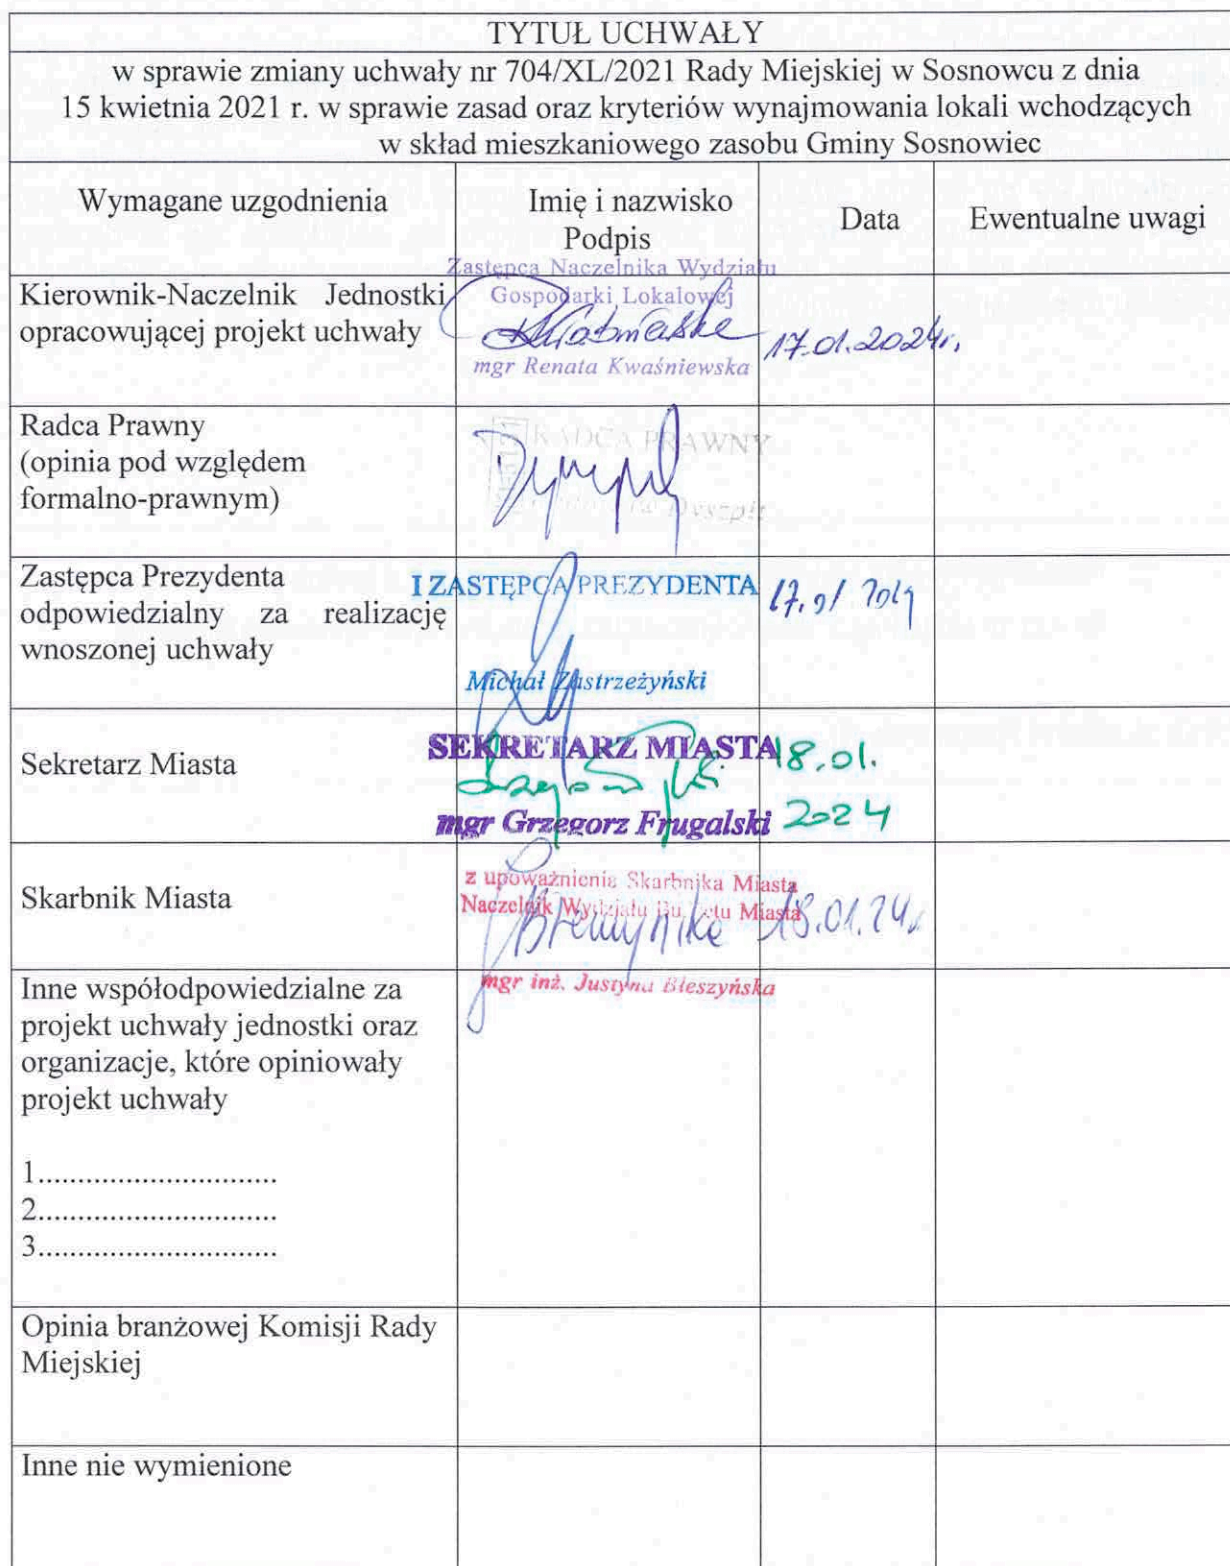 TYTUŁ UCHWAŁY
w sprawie zmiany uchwały nr 704/XL/2021 Rady Miejskiej w Sosnowcu z dnia
15 kwietnia 2021 r. w sprawie zasad oraz kryteriów wynajmowania lokali wchodzących
w skład mieszkaniowego zasobu Gminy Sosnowiec
Wymagane uzgodnienia
Imię i nazwisko
Podpis
Data
Ewentualne uwagi
Kierownik-Naczelnik Jednostki
opracowującej projekt uchwały
Zastępca Naczelnika Wydziału
Gospodarki Lokalowej
mgr Renata Kwaśniewska
17.01.2024r.
Radca Prawny
(opinia pod względem
formalno-prawnym)
RADCA PRAWNY
Zastępca Prezydenta
odpowiedzialny za realizację
wnoszonej uchwały
I ZASTĘPCA PREZYDENTA
Michał Zastrzeżyński
17.01
Sekretarz Miasta
SEKRETARZ MIASTA
mgr Grzegorz Frugalski
18.01.
2024
Skarbnik Miasta
z upoważnienia Skarbnika Miasta
Naczelnik Wydziału Budżetu Miasta
mgr inż. Justyna Bleszyńska
18.01.24r.
Inne współodpowiedzialne za
projekt uchwały jednostki oraz
organizacje, które opiniowały
projekt uchwały
1..............................
2..............................
3..............................
Opinia branżowej Komisji Rady
Miejskiej
Inne nie wymienione